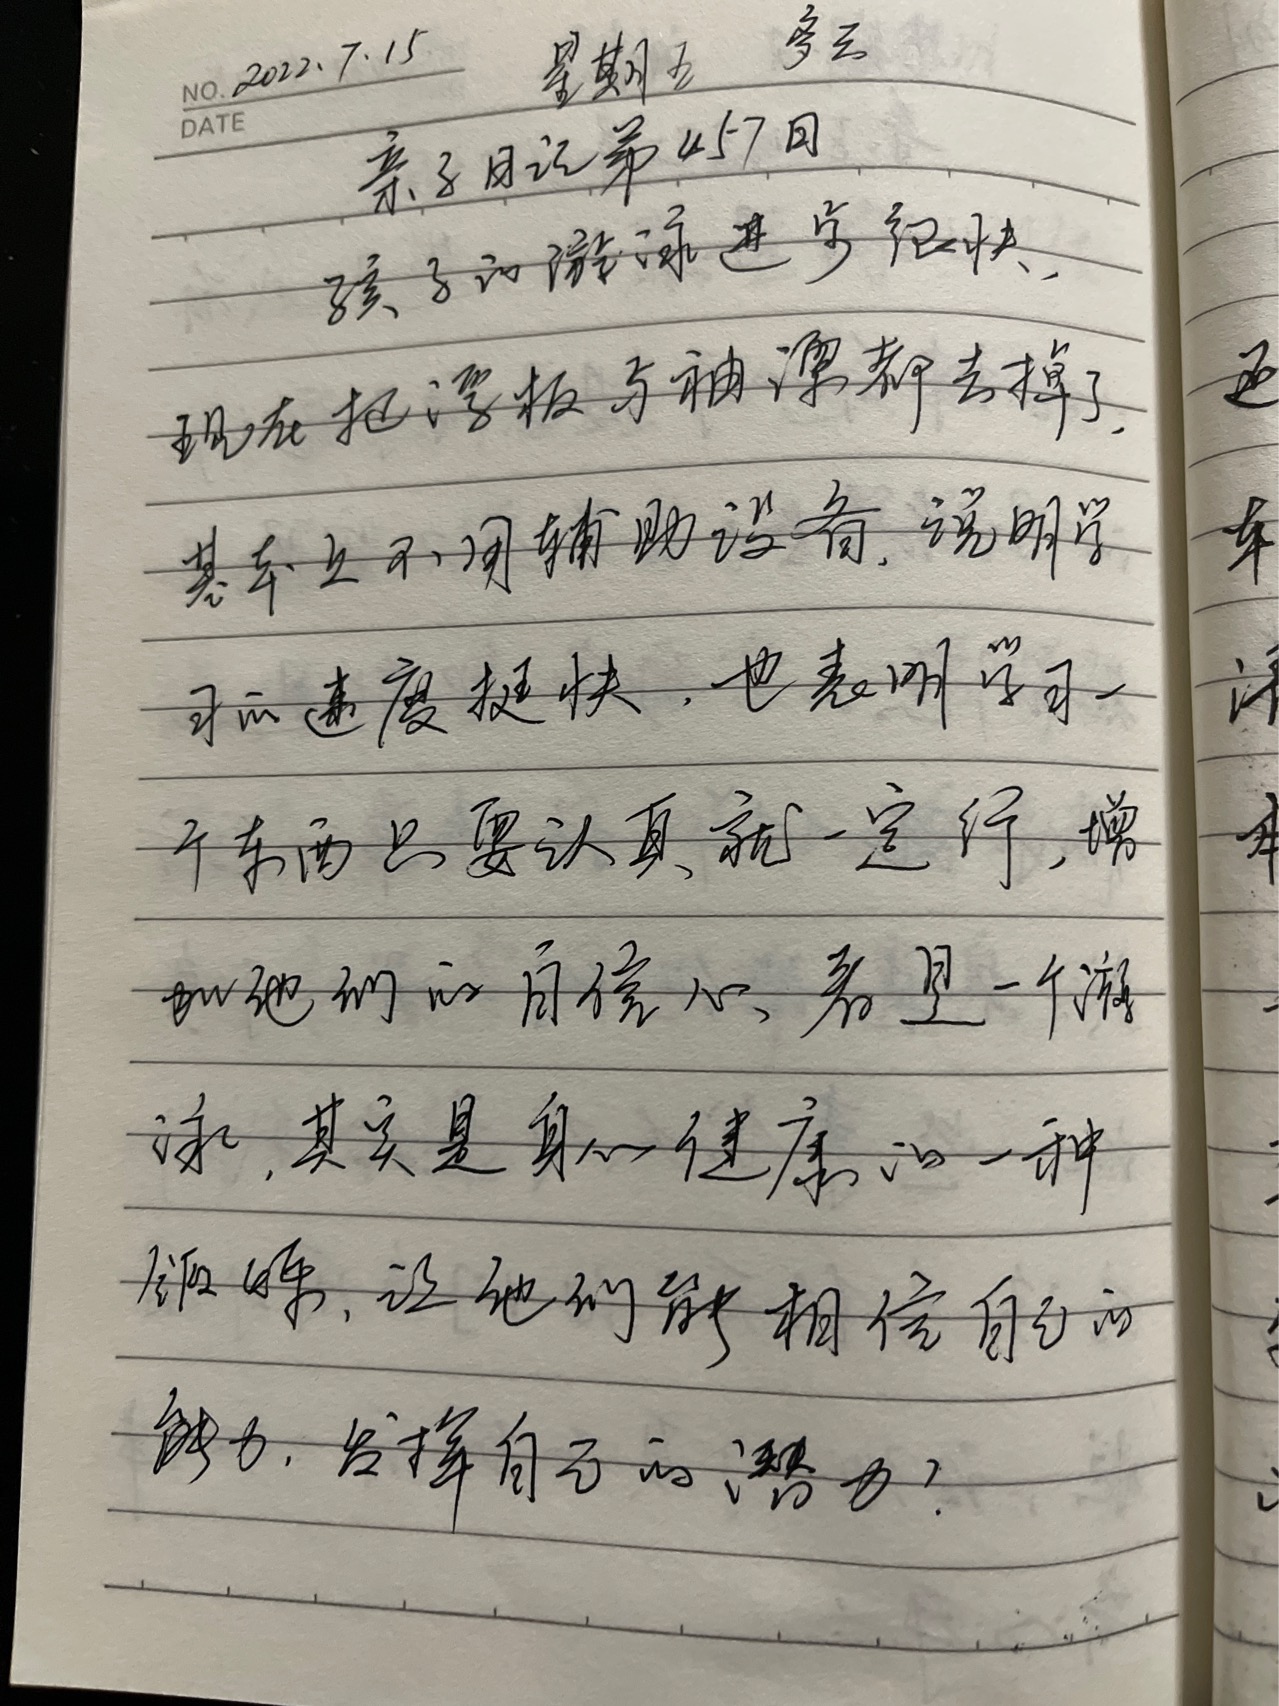 NO. 2022.7.15 星期五 多云
DATE
亲子日记第457日
孩子的游泳进步很快,
现在把浮板与袖漂都去掉了,
基本上不用辅助设备,说明学
习的速度挺快,也表明学习一
个东西只要认真就一定行,增
加他们的自信心、看是一个游
泳,其实是身心健康的一种
锻炼、让他们能相信自己的
能力,发挥自己的潜力?
还